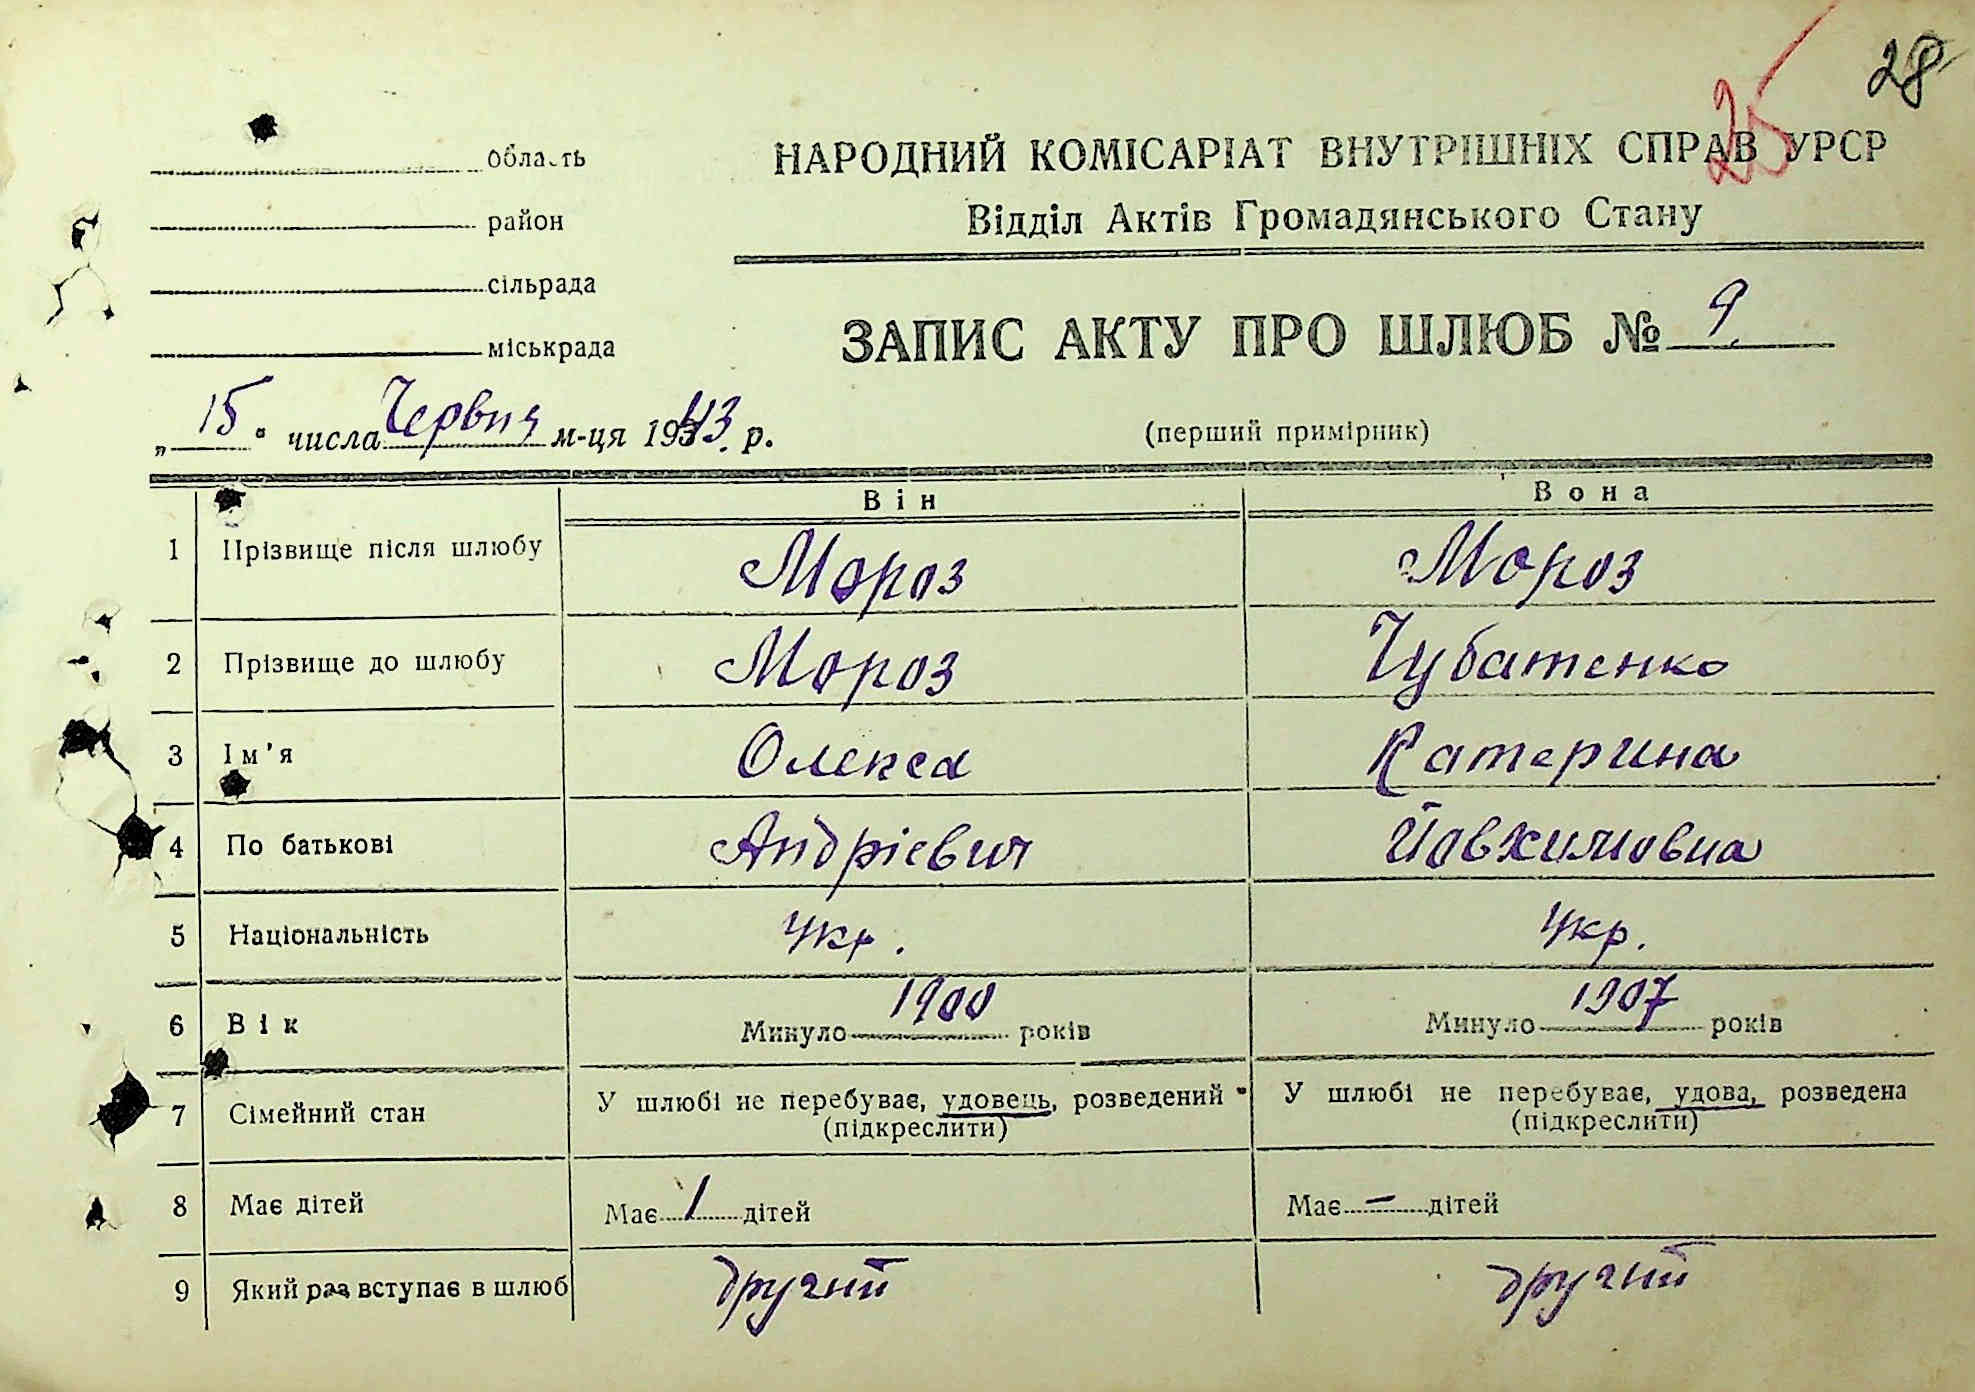 28
25
область
район
сільрада
міськрада
НАРОДНИЙ КОМІСАРІАТ ВНУТРІШНІХ СПРАВ УРСР
Відділ Актів Громадянського Стану
ЗАПИС АКТУ ПРО ШЛЮБ № 9.
„15" числа Червня м-ця 1943. р.
(перший примірник)
Він Вона
1 Прізвище після шлюбу Мороз Мороз
2 Прізвище до шлюбу Мороз Чубатенко
3 Ім'я Олекса Катерина
4 По батькові Андрієвич Йовхимовна
5 Національність Укр. Укр.
6 Вік Минуло 1900 років Минуло 1907 років
7 Сімейний стан У шлюбі не перебуває, удовець, розведений У шлюбі не перебуває, удова, розведена
(підкреслити) (підкреслити)
8 Має дітей Має 1 дітей Має – дітей
9 Який раз вступає в шлюб другий другий